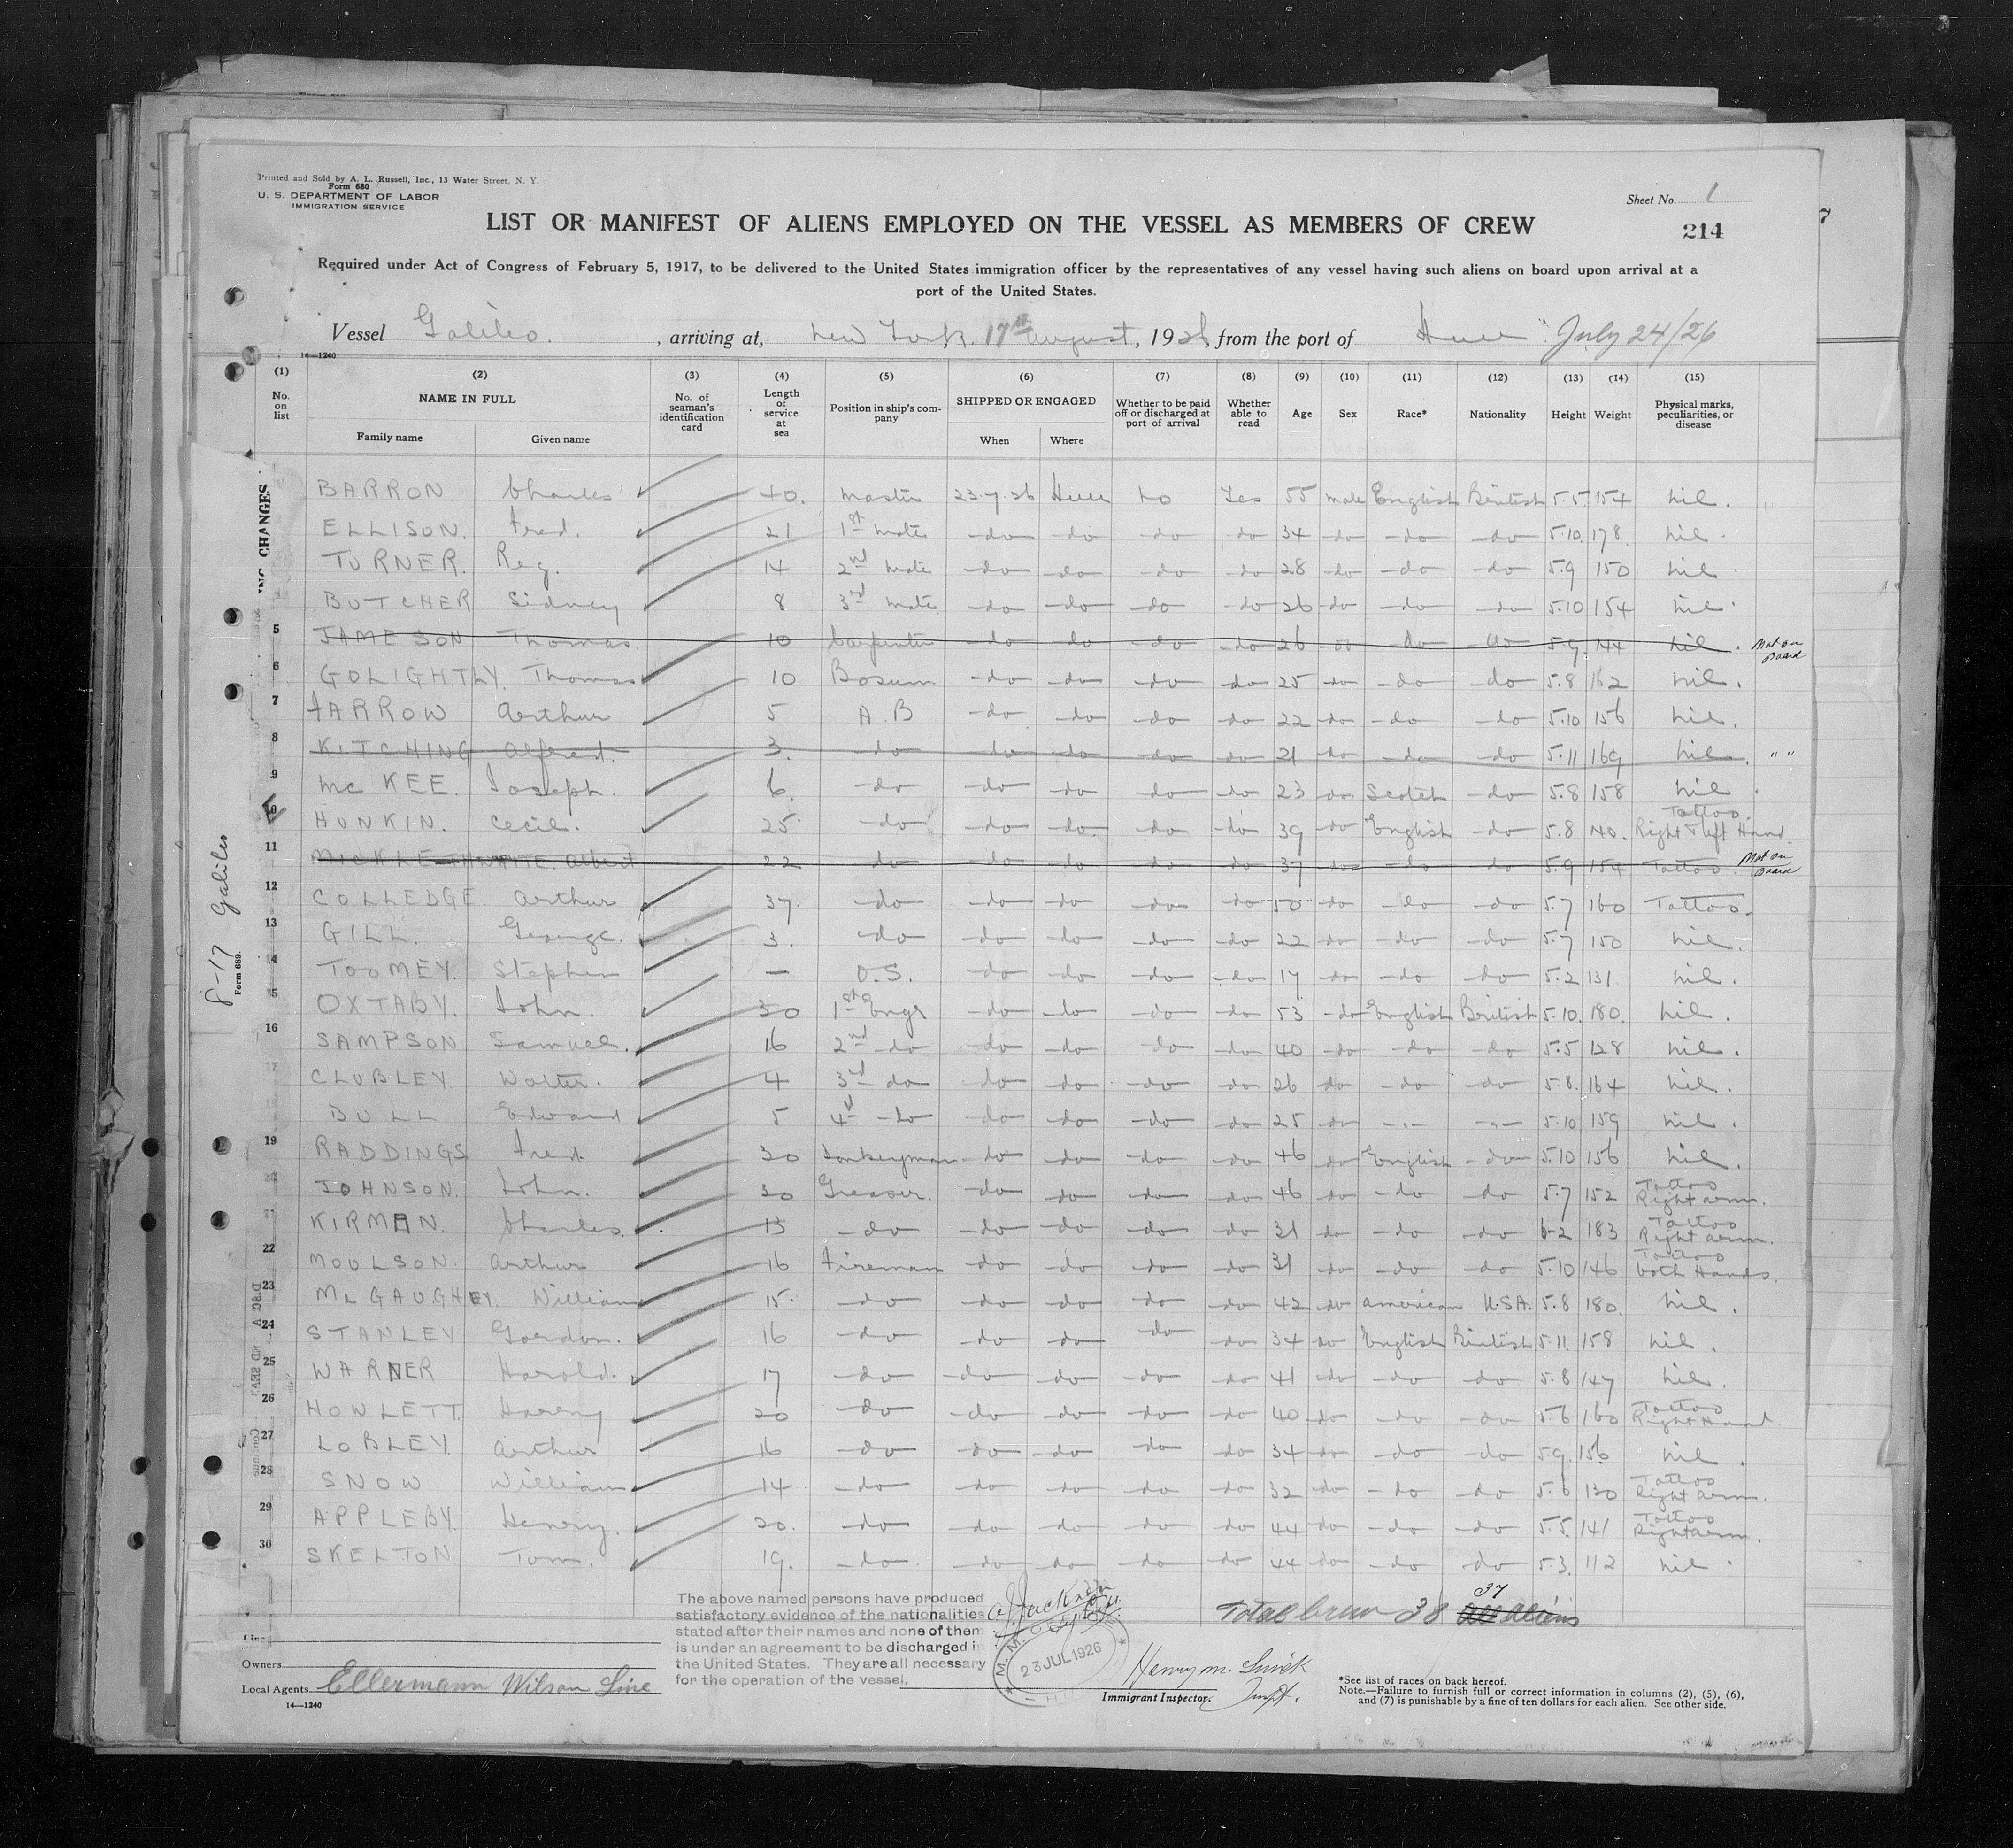 Printed and Sold by A. L. Russell, Inc., 13 Water Street, N. Y.
Form 680
U. S. DEPARTMENT OF LABOR
IMMIGRATION SERVICE
Sheet No. 1
LIST OR MANIFEST OF ALIENS EMPLOYED ON THE VESSEL AS MEMBERS OF CREW
214
7
Required under Act of Congress of February 5, 1917, to be delivered to the United States immigration officer by the representatives of any vessel having such aliens on board upon arrival at a
port of the United States.
Vessel Galileo. , arriving at, New York. 17th August, 1926, from the port of Hull July 24/26
14—1240
(1) (2) (3) (4) (5) (6) (7) (8) (9) (10) (11) (12) (13) (14) (15)
No. on list NAME IN FULL Family name Given name No. of seaman's identification card Length of service at sea Position in ship's company SHIPPED OR ENGAGED When Where Whether to be paid off or discharged at port of arrival Whether able to read Age Sex Race* Nationality Height Weight Physical marks, peculiarities, or disease
BARRON. Charles 40. Master 23.7.26 Hull No Yes 55 male English British 5.5. 154 nil.
ELLISON. Fred. 21 1st Mate -do- -do- -do- -do- 34 -do- -do- -do- 5.10. 178. nil.
TURNER. Reg. 14 2nd Mate -do- -do- -do- -do- 28 -do- -do- -do- 5.9 150 nil.
BUTCHER Sidney 8 3rd Mate -do- -do- -do- -do- 26 -do- -do- -do- 5.10 154 nil.
5 JAMESON Thomas 10 Carpenter -do- -do- -do- -do- 26 -do- -do- -do- 5.9. 144 nil. Not on Board
6 GOLIGHTLY. Thomas 10 Bosun -do- -do- -do- -do- 25 -do- -do- -do- 5.8 162 nil.
7 FARROW Arthur 5 A.B -do- -do- -do- -do- 22 -do- -do- -do- 5.10 156 nil.
8 KITCHING Alfred. 3. -do- -do- -do- -do- -do- 21 -do- -do- -do- 5.11 169 nil. " "
9 McKEE. Joseph. 6. -do- -do- -do- -do- -do- 23 -do- Scotch -do- 5.8 158 nil
10 HUNKIN. Cecil. 25. -do- -do- -do- -do- -do- 39 -do- English -do- 5.8 140. Tattoo. Right & left Hand.
11 MICKLETHWAITE. Albert 22 -do- -do- -do- -do- -do- 37 -do- -do- -do- 5.9 154 Tattoo. Not on Board
12 COLLEDGE Arthur 37. -do- -do- -do- -do- -do- 50 -do- -do- -do- 5.7 160 Tattoo.
13 GILL. George. 3. -do- -do- -do- -do- -do- 22 -do- -do- -do- 5.7 150 nil.
14 TOOMEY. Stephen — O.S. -do- -do- -do- -do- 17 -do- -do- -do- 5.2 131. nil.
15 OXTABY. John. 30 1st Engr -do- -do- -do- -do- 53 -do- English British 5.10. 180. nil.
16 SAMPSON Samuel. 16 2nd do -do- -do- -do- -do- 40 -do- -do- -do- 5.5 128 nil.
17 CLUBLEY Walter. 4 3rd do -do- -do- -do- -do- 26 -do- -do- -do- 5.8. 164 nil.
BULL Edward 5 4th do -do- -do- -do- -do- 25 -do- -"- -"- 5.10 159 nil.
19 RADDINGS Fred. 30 Donkeyman -do- -do- -do- -do- 46 do English -do- 5.10 156 nil.
20 JOHNSON. John. 30 Greaser. -do- -do- -do- -do- 46 do -do- -do- 5.7 152 Tattoo Right arm.
21 KIRMAN. Charles. 13 -do- -do- -do- -do- -do- 31 -do- -do- -do- 6-2 183 Tattoo Right arm.
22 MOULSON. Arthur 16 Fireman -do- -do- -do- -do- 31 do -do- -do- 5.10 146 Tattoo both Hands.
23 McGAUGHEY. William 15. -do- -do- -do- -do- -do- 42 do American U.S.A. 5.8 180. nil.
24 STANLEY Gordon. 16 -do- -do- -do- -do- -do- 34 do English British 5.11. 158 nil.
25 WARNER Harold. 17 -do- -do- -do- -do- -do- 41 -do- -do- -do- 5.8 147 nil.
26 HOWLETT Harry 20 -do- -do- -do- -do- -do- 40 -do- -do- -do- 5.6 160 Tattoo Right Hand.
27 LOBLEY. Arthur 16 -do- -do- -do- -do- -do- 34 -do- -do- -do- 5.9. 156 nil.
28 SNOW William 14 -do- -do- -do- -do- -do- 32 -do- -do- -do- 5.6 130 Tattoo Right arm.
29 APPLEBY. Henry. 20. -do- -do- -do- -do- -do- 44 -do- -do- -do- 5.5. 141 Tattoo Right arm.
30 SKELTON. Tom. 19. -do- -do- -do- -do- -do- 44 -do- -do- -do- 5.3. 112 nil.
ING CHANGES
8-17 Galileo
Form 689.
The above named persons have produced
satisfactory evidence of the nationalities
stated after their names and none of them
is under an agreement to be discharged in
the United States. They are all necessary
for the operation of the vessel.
23 JUL 1926
Total Crew 38 37 all Aliens
Owners
Local Agents Ellermann Wilson Line
14—1240
Immigrant Inspector.
*See list of races on back hereof.
Note.—Failure to furnish full or correct information in columns (2), (5), (6),
and (7) is punishable by a fine of ten dollars for each alien. See other side.